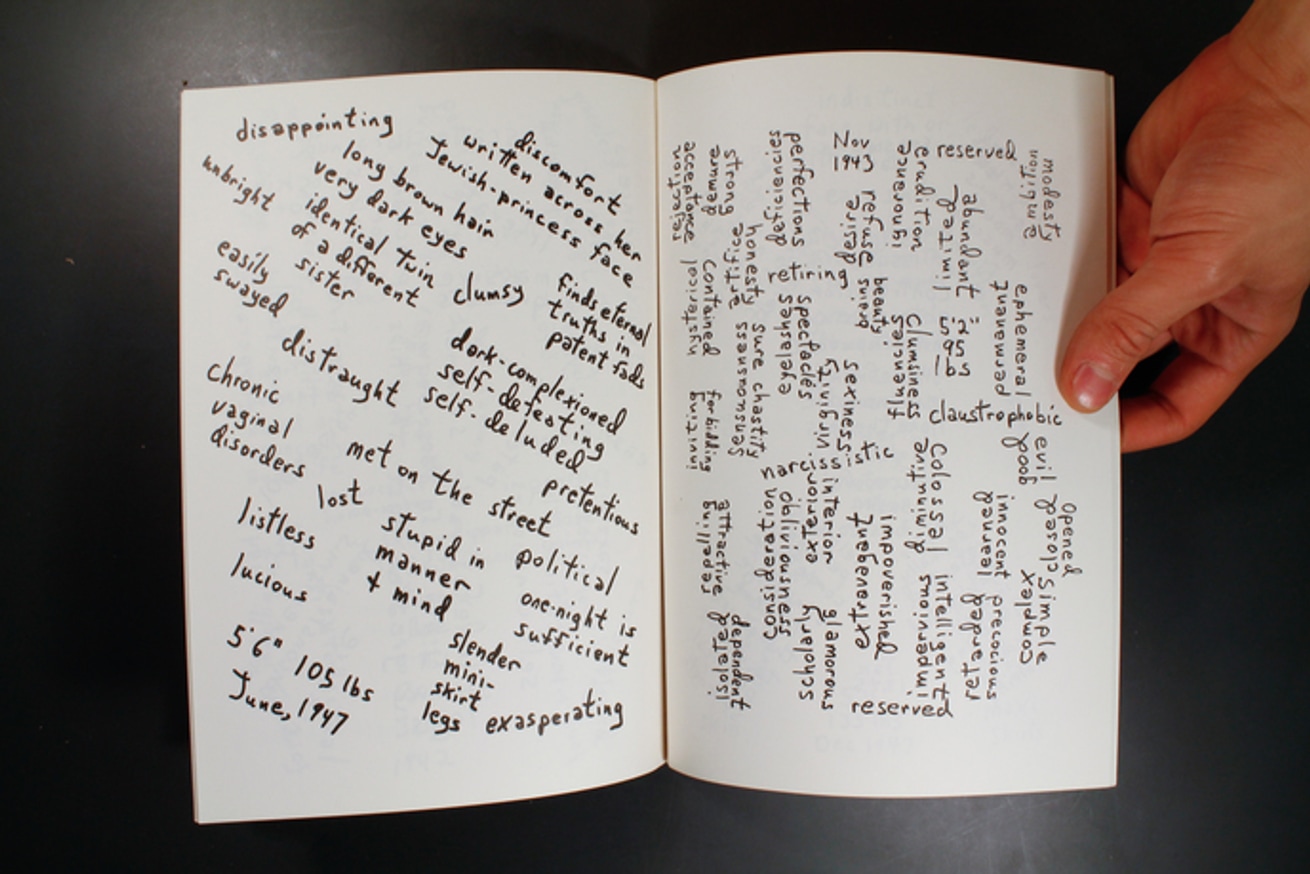 disappointing
discomfort
written across her
Jewish-princess face
long brown hair
very dark eyes
unbright
identical twin
of a different
sister
clumsy
easily
swayed
finds eternal
truths in
patent fads
distraught
dark-complexioned
self-defeating
self-deluded
chronic
vaginal
disorders
met on the street
pretentious
lost
listless
stupid in
manner
+ mind
political
lucious
one-night is
sufficient
5'6" 105 lbs
June, 1947
slender
mini-
skirt
legs
exasperating
modesty
ambition
reserved
erudition
ignorance
Nov
1943
refuse
desire
perfections
deficiencies
strong
acceptance
abundant
limited
ephemeral
permanent
retiring
honesty
artifice
contained
hysterical
beauty
being
clumsiness
spectacles
eyelashes
sure chastity
sensuousness
sexiness
virginity
claustrophobic
forbidding
inviting
narcissistic
evil
good
colossal
diminutive
opened
closed
innocent
interior
exterior
obliviousness
consideration
impoverished
extravagant
attractive
repelling
simple
complex
intelligent
precocious
retarded
glamorous
scholarly
dependent
isolated
reserved